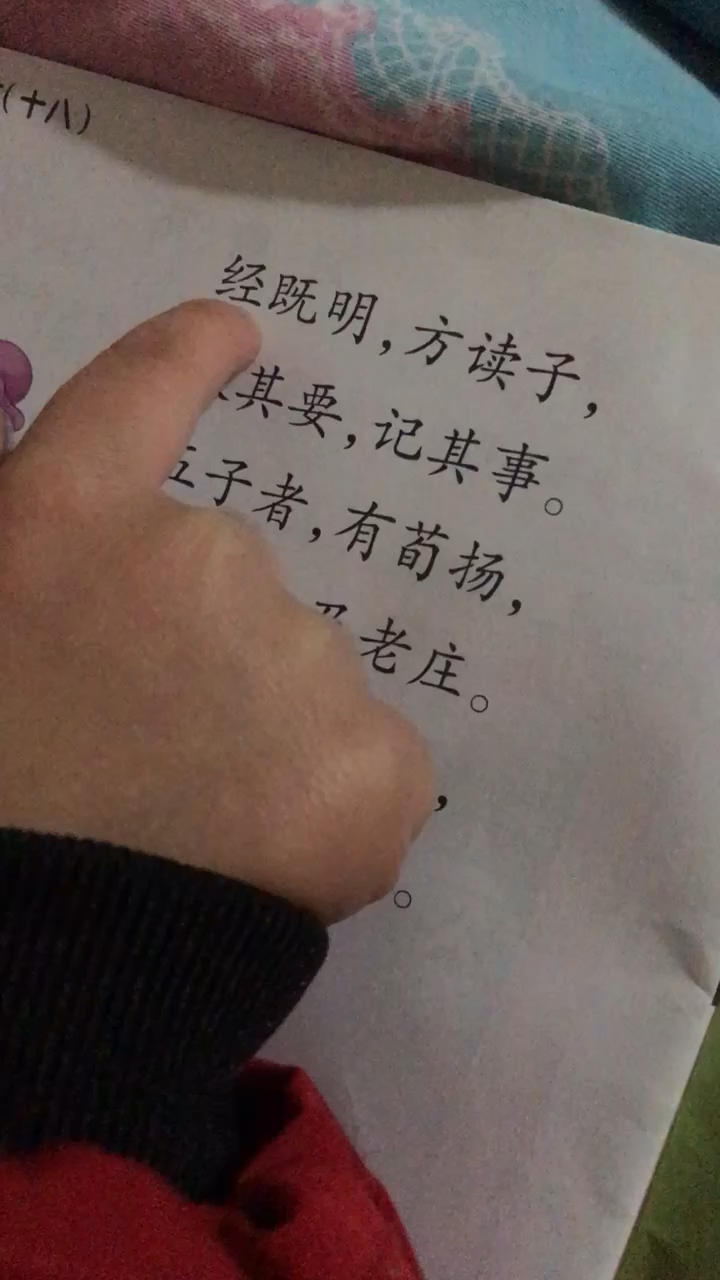 (十八)
经既明，方读子，
其要，记其事。
子者，有荀扬，
老庄。
，
。